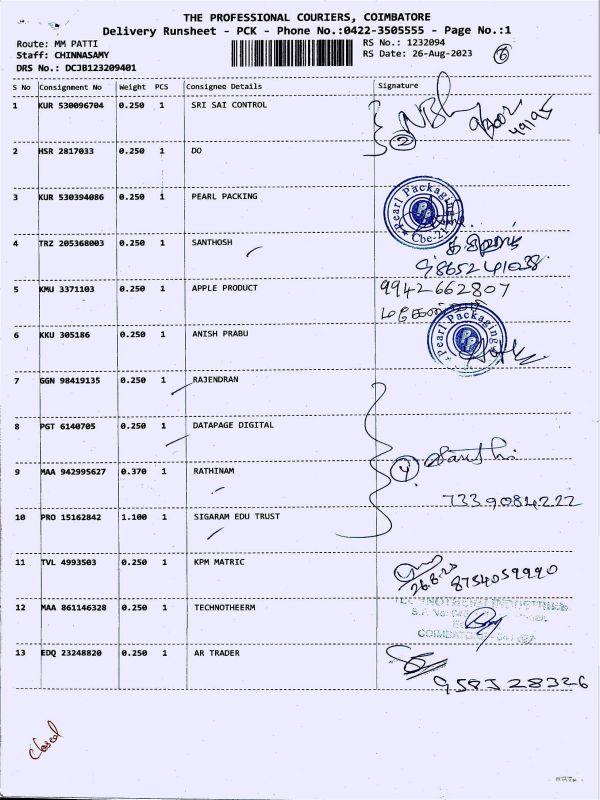 THE PROFESSIONAL COURIERS, COIMBATORE
Delivery Runsheet - PCK - Phone No.:0422-3505555 - Page No.:1
Route: MM PATTI RS No.: 1232094
Staff: CHINNASAMY RS Date: 26-Aug-2023 6
DRS No.: DCJB123209401
S No Consignment No Weight PCS Consignee Details Signature
1 KUR 530096704 0.250 1 SRI SAI CONTROL
2 HSR 2817033 0.250 1 DO 2
3 KUR 530394086 0.250 1 PEARL PACKING Pearl Packaging Cbe-21
4 TRZ 205368003 0.250 1 SANTHOSH
9865241038
5 KMU 3371103 0.250 1 APPLE PRODUCT 9942662807
6 KKU 305186 0.250 1 ANISH PRABU Pearl Packaging
7 GGN 98419135 0.250 1 RAJENDRAN
8 PGT 6140705 0.250 1 DATAPAGE DIGITAL
9 MAA 942995627 0.370 1 RATHINAM 4
7339084222
10 PRO 15162842 1.100 1 SIGARAM EDU TRUST
11 TVL 4993503 0.250 1 KPM MATRIC 26.8.23 8754059990
12 MAA 861146328 0.250 1 TECHNOTHEERM
COIMBATORE
13 EDQ 23248820 0.250 1 AR TRADER
958528326
closed